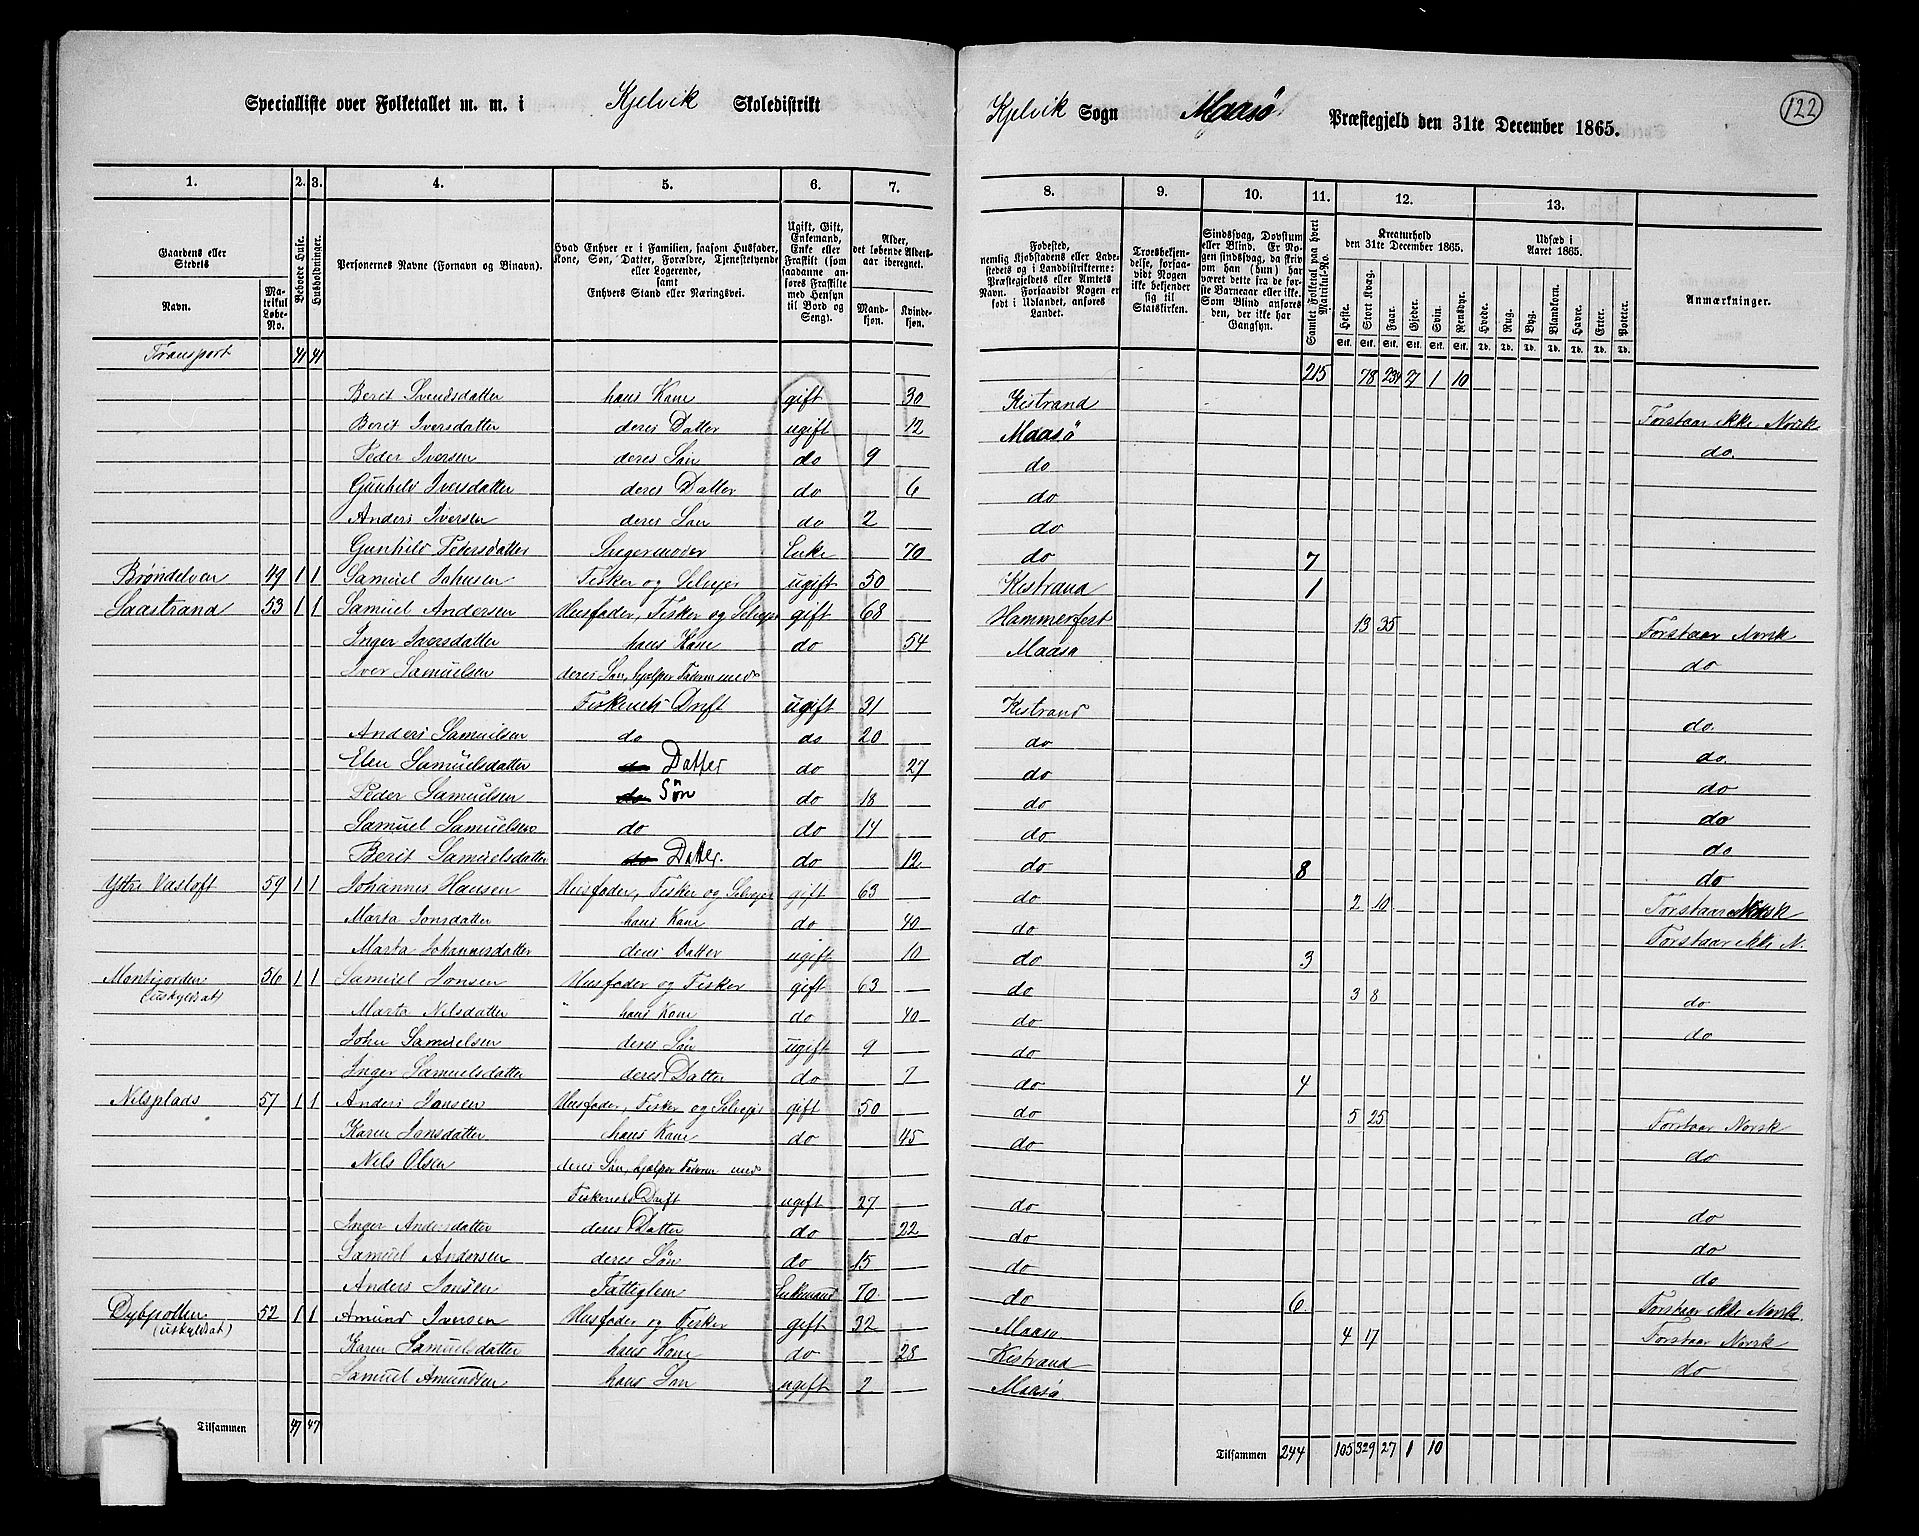 Specialliste over Folketallet m. m. i Kjelvik Skoledistrikt Kjelvik Sogn Maasø Præstegjeld den 31te December 1865. 122
1. 2. 3. 4. 5. 6. 7. 8. 9. 10. 11. 12. 13.
Gaardens eller Stedets
Navn.
Matrikul Løbe-No.
Beboede Huse.
Husholdninger.
Personernes Navne (Fornavn og Binavn).
Hvad Enhver er i Familien, saasom Husfader, Kone, Søn, Datter, Forældre, Tjenestetyende eller Logerende,
samt
Enhvers Stand eller Næringsvei.
Ugift, Gift, Enkemand, Enke eller Fraskilt (som saadanne anføres Fraskilte med Hensyn til Bord og Seng).
Alder, det løbende Alders-aar iberegnet.
Mandkjøn. Kvindekjøn.
Fødested, nemlig Kjøbstadens eller Ladestedets og i Landdistrikterne: Præstegjeldets eller Amtets Navn. Forsaavidt Nogen er født i Udlandet, anføres Landet.
Troesbekjendelse, forsaavidt Nogen ikke bekjender sig til Statskirken.
Sindssvag, Døvstum eller Blind. Er Nogen sindssvag, da skrives, om han (hun) har været dette fra de første Barneaar eller ikke. Som Blind anføres den, der ikke har Gangsyn.
Samlet Folketal paa hvert Matricul-No.
Kreaturhold den 31te December 1865.
Heste. Stort Kvæg. Faar. Gjeder. Svin. Rensdyr.
Udsæd i Aaret 1865.
Hvede. Rug. Byg. Blandkorn. Havre. Erter. Poteter.
Anmærkninger.
Transport 41 41 215 78 234 27 1 10
Berit Svendsdatter hans Kone gift 30 Kistrand Forstaar ikke Norsk
Berit Iversdatter deres Datter ugift 12 Maasø do.
Peder Iversen deres Søn do 9 do
Gunhild Iversdatter deres Datter do 6 do
Anders Iversen deres Søn do 2 do
Gunhild Pedersdatter Svigermoder Enke 70 do 7
Brøndelven 49 1 1 Samuel Johnsen Fisker og Selvejer ugift 50 Kistrand 1
Saastrand 53 1 1 Samuel Andersen Husfader, Fisker og Selvejer gift 68 Hammerfest 13 35 Forstaar Norsk
Inger Iversdatter hans Kone do 54 Maasø do
Iver Samuelsen deres Søn, hjælper Faderen med
Fiskeriets Drift ugift 31 Kistrand do.
Anders Samuelsen do do 20 do do
Elen Samuelsdatter do Datter do 27 do do
Peder Samuelsen do Søn do 18 do do
Samuel Samuelsen do do 14 do do
Berit Samuelsdatter do Datter. do 12 do 8 do
Yttre Vasloft 59 1 1 Johannes Hansen Husfader, Fisker og Selvejer gift 63 do 2 10 Forstaar Norsk
Marta Jonsdatter hans Kone do 40 do Forstaar ikke N.
Marta Johannesdatter deres Datter ugift 10 do 3
56 1 1 Samuel Jonsen Husfader og Fisker gift 63 do 3 8 do
(uskyldsat) Marta Nilsdatter " hans Kone do 40 do do
John Samuelsen deres Søn ugift 9 do
Inger Samuelsdatter deres Datter do 7 do 4
Nilsplads 57 1 1 Anders Jonsen Husfader, Fisker og Selvejer gift 50 do 5 25 Forstaar Norsk
Karen Jonsdatter hans Kone do 45 do do
Nils Olsen deres Søn, hjælper Faderen med
Fiskeriets Drift ugift 27 do do
Inger Andersdatter deres Datter do 22 do do
Samuel Andersen deres Søn do 15 do do
Anders Jonsen Fattiglem Enkemand 70 do 6 Forstaar ikke Norsk.
Dybpollen 52 1 1 Amund Iversen Husfader og Fisker gift 32 Maasø 4 17 Forstaar Norsk
(uskyldsat) Karen Samuelsdatter hans Kone do 28 Kistrand do
Samuel Amundsen hans Søn ugift 2 Maasø
Tilsammen 47 47 Tilsammen 244 105 329 27 1 10